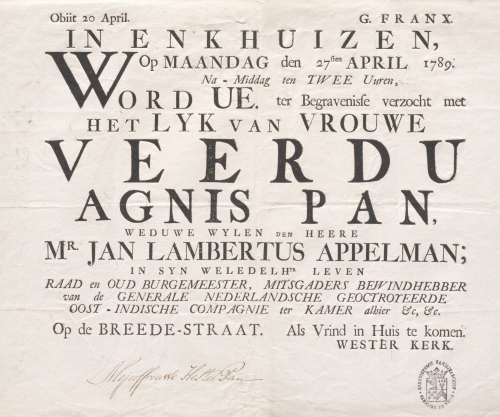 Obiit 20 April. G. FRANX.
IN ENKHUIZEN,
Op MAANDAG den 27sten APRIL 1789.
Na-Middag ten TWEE Uuren,
WORD UE. ter Begravenisse verzocht met
HET LYK VAN VROUWE
VEERDU
AGNIS PAN,
WEDUWE WYLEN DEN HEERE
Mr. JAN LAMBERTUS APPELMAN;
IN SYN WELEDELHts LEVEN
RAAD en OUD BURGEMEESTER, MITSGADERS BEWINDHEBBER
van de GENERALE NEDERLANDSCHE GEOCTROYEERDE
OOST-INDISCHE COMPAGNIE ter KAMER alhier &c, &c.
Op de BREEDE-STRAAT. Als Vrind in Huis te komen.
WESTER KERK.
Hester Pan